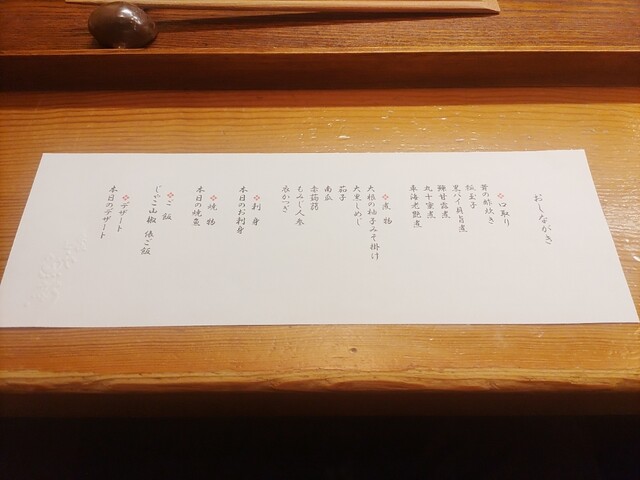 おしながき
口取り
昔の酢炊き
松玉子
黒バイ貝旨煮
鰊甘露煮
丸十蜜煮
車海老艶煮
煮物
大根の柚子みそ掛け
大黒しめじ
茄子
南瓜
赤蒟蒻
もみじ人参
衣かつぎ
刺身
本日のお刺身
焼物
本日の焼魚
ご飯
じゃこ山椒 俵ご飯
デザート
本日のデザート